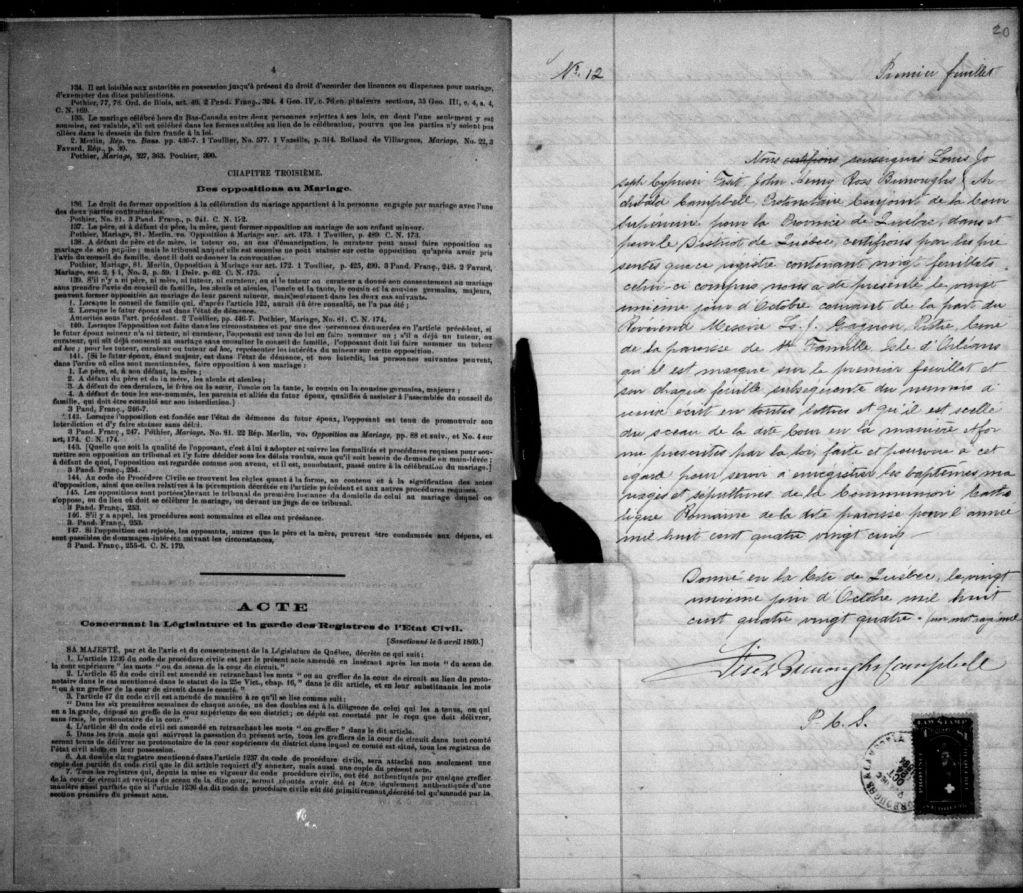 4
134. Il est loisible aux autorités en possession jusqu'à présent du droit d'accorder des licences ou dispenses pour mariage,
d'exempter des dites publications.
Pothier, 77, 78. Ord. de Blois, art. 40. 2 Pand. Franç., 324. 4 Geo. IV, c. 76 en plusieurs sections, 35 Geo. III, c. 4, s. 4,
C. N. 169.
135. Le mariage célébré hors du Bas-Canada entre deux personnes sujettes à ses lois, ou dont l'une seulement y est
soumise, est valable, s'il est célébré dans les formes usitées au lieu de la célébration, pourvu que les parties n'y soient pas
allées dans le dessein de faire fraude à la loi.
2. Merlin, Rép. vo. Bans. pp. 436-7. 1 Toullier, No. 577. 1 Vazeille, p. 314. Rolland de Villargues, Mariage, No. 22, 3
Favard, Rép., p. 30.
Pothier, Mariage, 327, 363. Pouhier, 390.
CHAPITRE TROISIÈME.
Des oppositions au Mariage.
136. Le droit de former opposition à la célébration du mariage appartient à la personne engagée par mariage avec l'une
des deux parties contractantes.
Pothier, No. 81. 3 Pand. Franç., p. 241. C. N. 172.
137. Le père, et à défaut du père, la mère, peut former opposition au mariage de son enfant mineur.
Pothier, Mariage, 81. Merlin, vo. Opposition à Mariage sur. art. 173. 1 Toullier, p. 489. C. N. 173.
138. A défaut de père et de mère, le tuteur ou, au cas d'émancipation, le curateur peut aussi faire opposition au
mariage de son pupille; mais le tribunal auquel elle est soumise ne peut statuer sur cette opposition qu'après avoir pris
l'avis du conseil de famille, dont il doit ordonner la convocation.
Pothier, Mariage, 81. Merlin, Opposition à Mariage sur art. 172. 1 Toullier, p. 425, 490. 3 Pand. Franç., 248. 2 Favard,
Mariage, sec. 2, § 1, No. 3, p. 59. 1 Delv. p. 62. C. N. 175.
139. S'il n'y a ni père, ni mère, ni tuteur, ni curateur, ou si le tuteur ou curateur a donné son consentement au mariage
sans prendre l'avis du conseil de famille, les aïeuls et aïeules, l'oncle et la tante, le cousin et la cousine germains, majeurs,
peuvent former opposition au mariage de leur parent mineur, mais seulement dans les deux cas suivants.
1. Lorsque le conseil de famille qui, d'après l'article 122, aurait dû être consulté, ne l'a pas été;
2. Lorsque le futur époux est dans l'état de démence.
Autorités sous l'art. précédent. 2 Toullier, pp. 416-7. Pothier, Mariage, No. 81. C. N. 174.
140. Lorsque l'opposition est faite dans les circonstances et par une des personnes énumérées en l'article précédent, si
le futur époux mineur n'a ni tuteur, ni curateur, l'opposant est tenu de lui en faire nommer un; s'il a déjà un tuteur, ou
curateur, qui ait déjà consenti au mariage sans consulter le conseil de famille, l'opposant doit lui faire nommer un tuteur
ad hoc; pour les tuteur, curateur ou tuteur ad hoc, représenter les intérêts du mineur sur cette opposition.
141. [Si le futur époux, étant majeur, est dans l'état de démence, et non interdit, les personnes suivantes peuvent,
dans l'ordre où elles sont mentionnées, faire opposition à son mariage :
1. Le père, et, à son défaut, la mère;
2. A défaut du père et de la mère, les aïeuls et aïeules;
3. A défaut de ces derniers, le frère ou la sœur, l'oncle ou la tante, le cousin ou la cousine germains, majeurs;
4. A défaut de tous les sus-nommés, les parents et alliés du futur époux, qualifiés à assister à l'assemblée du conseil de
famille, qui doit être consulté sur son interdiction.]
3 Pand. Franç., 246-7.
142. Lorsque l'opposition est fondée sur l'état de démence du futur époux, l'opposant est tenu de promouvoir son
interdiction et d'y faire statuer sans délai.
3 Pand. Franç., 247. Pothier, Mariage, No. 81. 22 Rép. Merlin, vo. Opposition au Mariage, pp. 88 et suiv., et No. 4 sur
art. 174. C. N. 174.
143. [Quelle que soit la qualité de l'opposant, c'est à lui à adopter et suivre les formalités et procédures requises pour sou-
mettre son opposition au tribunal et l'y faire décider sous les délais voulus, sans qu'il soit besoin de demande en main-levée;
à défaut de quoi, l'opposition est regardée comme non avenu, et il est, nonobstant, passé outre à la célébration du mariage.]
3 Pand. Franç., 254.
144. Au code de Procédure Civile se trouvent les règles quant à la forme, au contenu et à la signification des actes
d'opposition, ainsi que celles relatives à la péremption décrétée en l'article précédent et aux autres procédures requises.
145. Les oppositions sont portées devant le tribunal de première instance du domicile de celui au mariage duquel on
s'oppose, ou du lieu où doit se célébrer le mariage, ou devant un juge de ce tribunal.
3 Pand. Franç., 253.
146. S'il y a appel, les procédures sont sommaires et elles ont préséance.
3. Pand. Franç., 253.
147. Si l'opposition est rejetée, les opposants, autres que le père et la mère, peuvent être condamnés aux dépens, et
sont passibles de dommages-intérêts suivant les circonstances.
3 Pand. Franç., 255-6. C. N. 179.
ACTE
Concernant la Législature et la garde des Registres de l'Etat Civil.
[Sanctionné le 5 avril 1869.]
SA MAJESTÉ, par et de l'avis et du consentement de la Législature de Québec, décrète ce qui suit;
1. L'article 1236 du code de procédure civile est par le présent acte amendé en insérant après les mots "du sceau de
la cour supérieure" les mots "ou du sceau de la cour de circuit."
2. L'article 45 du code civil est amendé en retranchant les mots "ou au greffier de la cour de circuit au lieu du proto-
notaire dans le cas mentionné dans le statut de la 25e Vict., chap. 16," dans le dit article, et en leur substituant les mots
"ou à un greffier de la cour de circuit dans le comté."
3. l'article 47 du code civil est amendé de manière à ce qu'il se lise comme suit:
"Dans les six premières semaines de chaque année, un des doubles est à la diligence de celui qui les a tenus, ou qui
en a la garde, déposé au greffe de la cour supérieure de son district; ce dépôt est constaté par le reçu que doit délivrer,
sans frais, le protonotaire de la cour."
4. L'article 48 du code civil est amendé en retranchant les mots "ou greffier" dans le dit article.
5. Dans les trois mois qui suivront la passation du présent acte, tous les greffiers de la cour de circuit dans tout comté
seront tenus de délivrer au protonotaire de la cour supérieure du district dans lequel ce comté est situé, tous les registres de
l'état civil alors en leur possession.
6. Au double du registre mentionné dans l'article 1237 du code de procédure civile, sera attaché non seulement une
copie des parties du code civil que le dit article requiert d'y annexer, mais aussi une copie du présent acte.
7. Tous les registres qui, depuis la mise en vigueur du code procédure civile, ont été authentiqués par quelque greffier
de la cour de circuit et revêtus de sceau de la dite cour, seront réputés avoir été et être légalement authentiqués d'une
manière aussi parfaite que si l'article 1236 du dit code de procédure civile eût été primitivement décrété tel qu'amendé par la
section première du présent acte.
20
No. 12
Premier feuillet
Nous certifions soussignés Louis Jo
seph Cyprien Fiset John Henry Ross Burroughs & Ar
chibald Campbell, Protonotaire Conjoint de la Cour
Supérieure pour la Province de Québec, dans et
pour le District de Québec, certifions par les pré
sentes que ce registre contenant vingt feuillets
celui ci compris nous a été présenté le vingt
unième jour d'Octobre courant de la part du
Révérend Messire Ls. J. Gagnon Ptre, Curé
de la paroisse de Ste Famille Isle d'Orléans
qu'il est marqué sur le premier feuillet et
sur chaque feuille subséquente du numéro d'i
ceux écrit en toutes lettres et qu'il est scellé
du sceau de la dite Cour en la manière et for
me présentés par la loi, faite et pourvue à cet
égard pour servir à enregistrer les baptêmes ma
riages et sépultures de la Communion Catho
lique Romaine de la dite paroisse pour l'année
mil huit cent quatre vingt cinq
Donné en la Cité de Québec, le vingt
unième jour d'Octobre mil huit
cent quatre vingt quatre - un mot rayé nul
Fiset Burroughs Campbell
P. C. S.
LAW STAMP